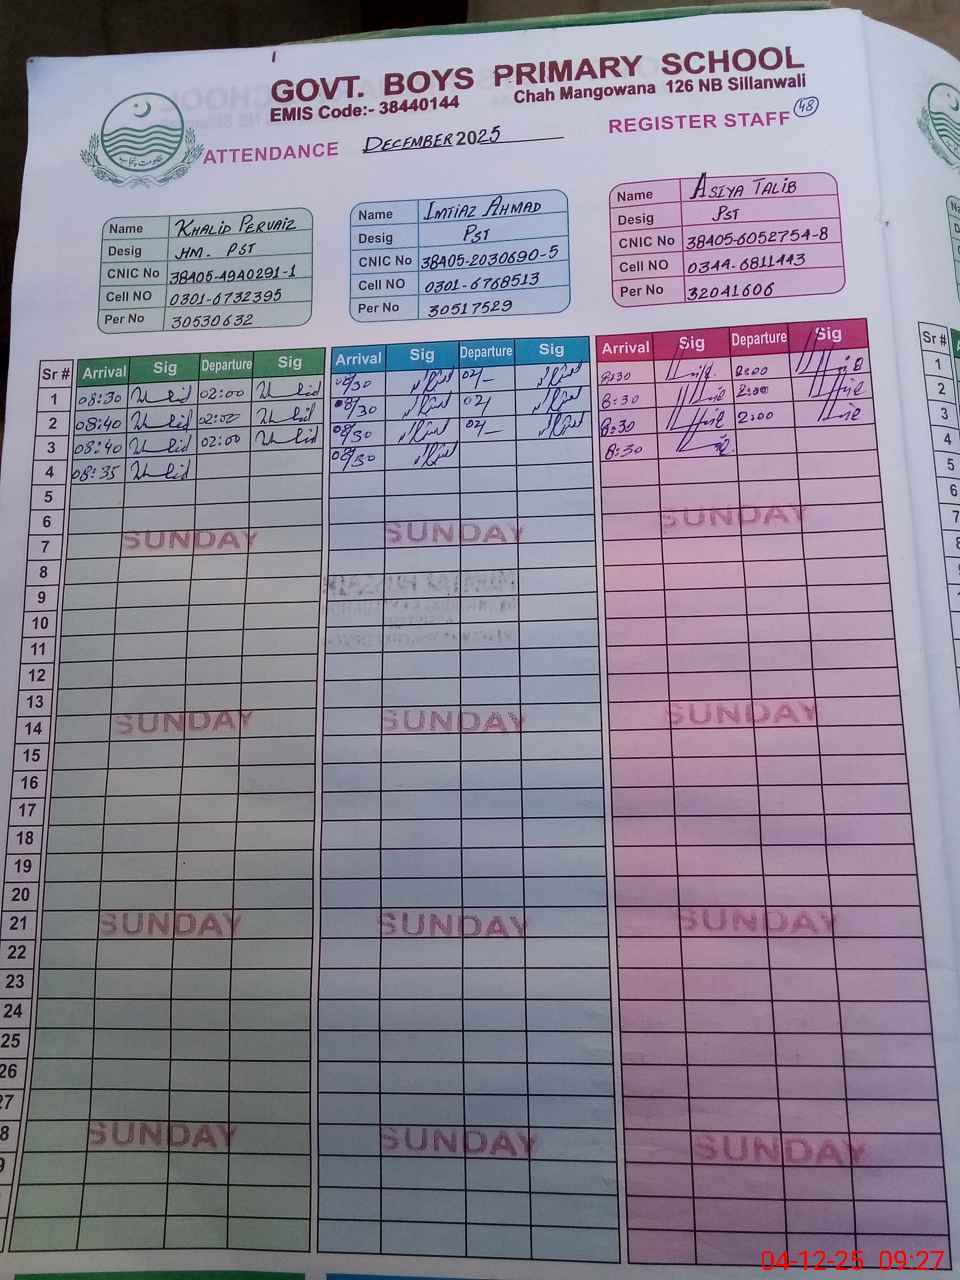 GOVT. BOYS PRIMARY SCHOOL
EMIS Code:- 38440144 Chah Mangowana 126 NB Sillanwali
ATTENDANCE DECEMBER 2025 REGISTER STAFF 48
حکومت پنجاب
Name KHALID PERVAIZ
Desig HM. PST
CNIC No 38405-4940291-1
Cell NO 0301-6732395
Per No 30530632
Name IMTIAZ AHMAD
Desig PST
CNIC No 38405-2030690-5
Cell NO 0301-6768513
Per No 30517529
Name ASIYA TALIB
Desig PST
CNIC No 38405-6052754-8
Cell NO 0344-6811443
Per No 32041606
Sr # Arrival Sig Departure Sig Arrival Sig Departure Sig Arrival Sig Departure Sig
1 08:30 02:00 08/30 02/- 8:30 2:00
2 08:40 02:00 08/30 02/ 8:30 2:00
3 08:40 02:00 08/30 02/- 8:30 2:00
4 08:35 08/30 8:30
5
6
7 SUNDAY SUNDAY SUNDAY
8
9
10
11
12
13
14 SUNDAY SUNDAY SUNDAY
15
16
17
18
19
20
21 SUNDAY SUNDAY SUNDAY
22
23
24
25
26
27
8 SUNDAY SUNDAY SUNDAY
9
Sr #
1
2
3
4
5
6
7
8
04-12-25 09:27